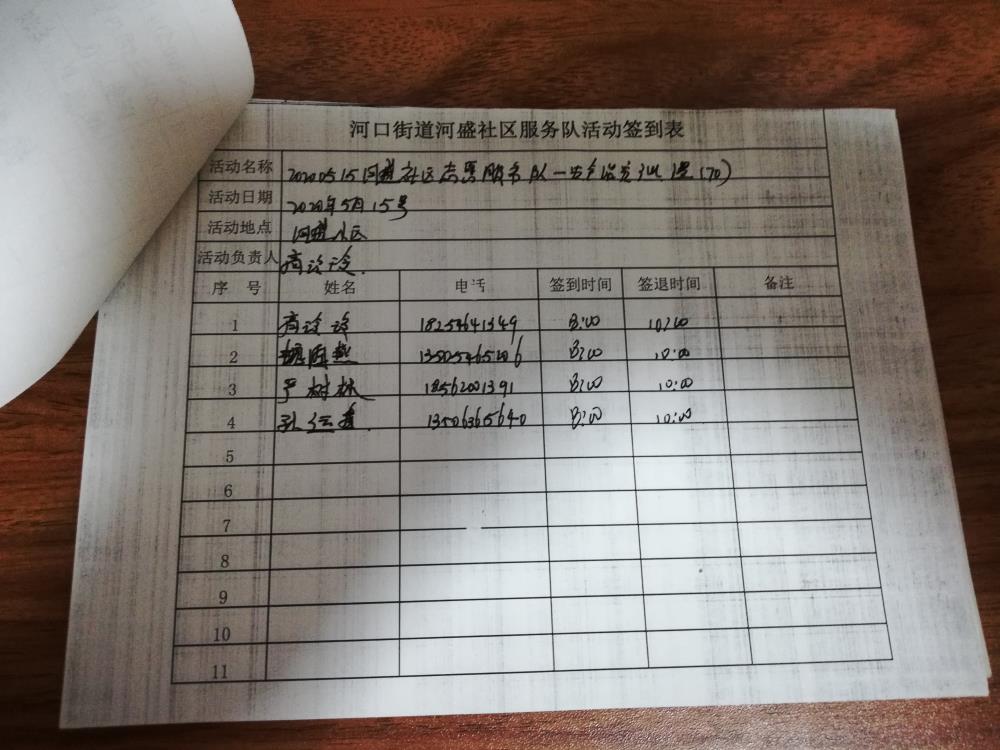 河口街道河盛社区服务队活动签到表
活动名称 20200515河盛社区志愿服务队一
活动日期 2020年5月15号
活动地点 河盛社区
活动负责人 高诊诊
序号 姓名 电话 签到时间 签退时间 备注
1 高诊诊 18254641349 8:00 10:00
2 8:00 10:00
3 尹树林 18562001391 8:00 10:00
4 孙 13506365640 8:00 10:00
5
6
7
8
9
10
11